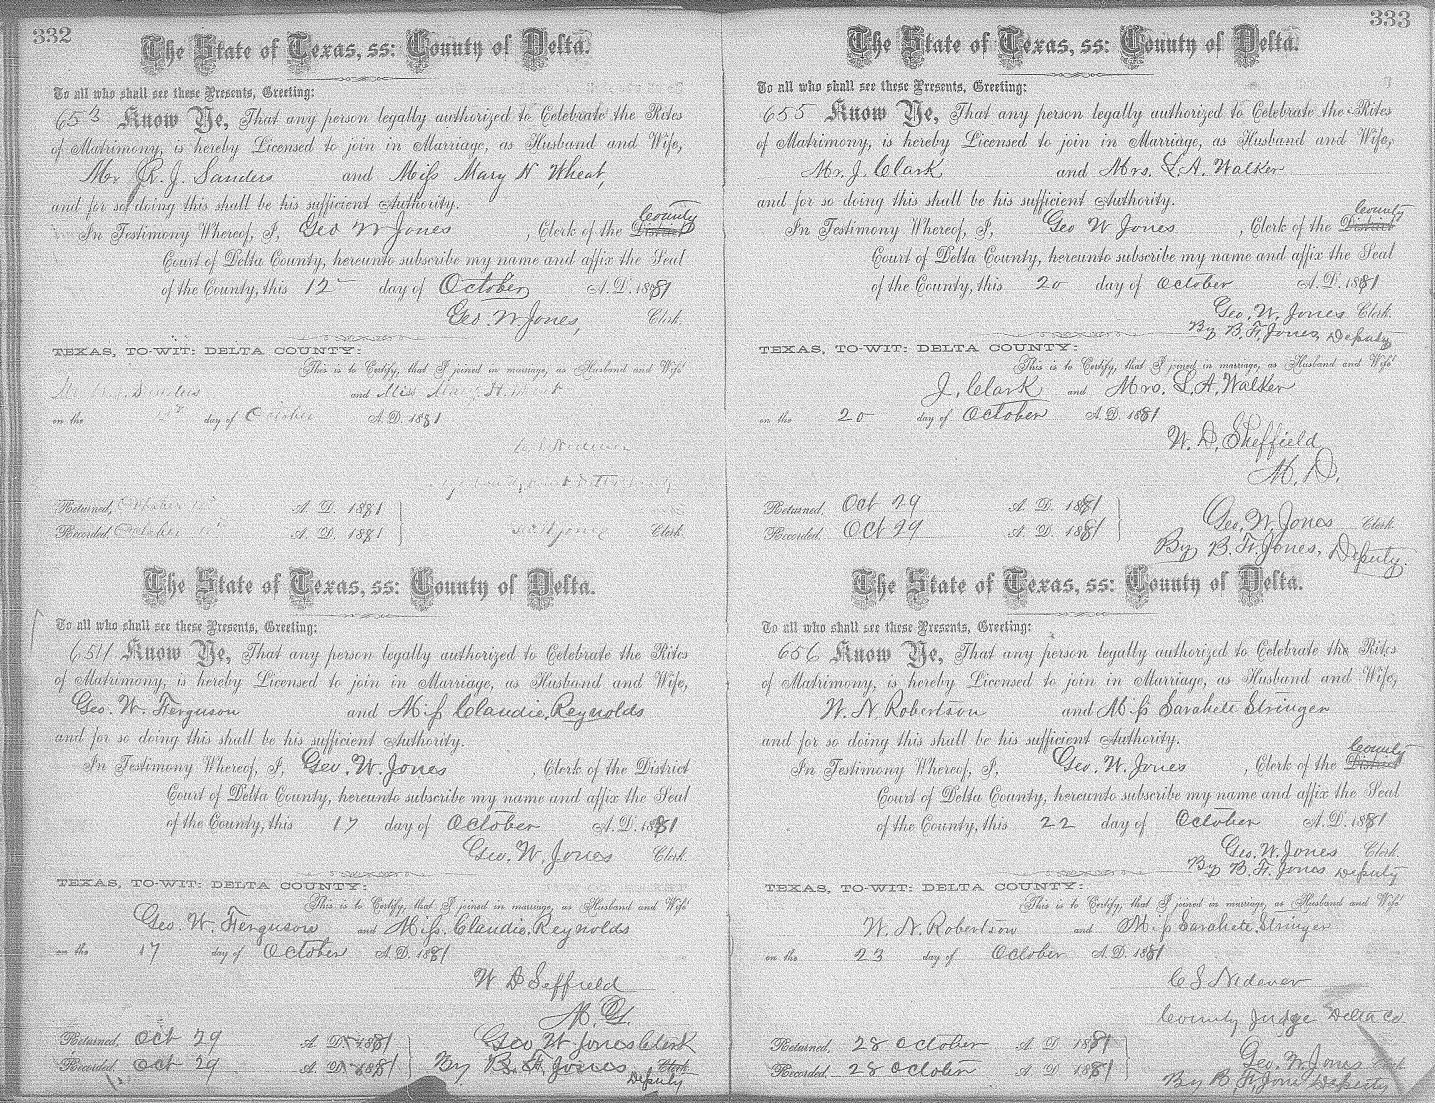 332
The State of Texas, ss: County of Delta.
To all who shall see these Presents, Greeting:
653 Know Ye, That any person legally authorized to Celebrate the Rites
of Matrimony, is hereby Licensed to join in Marriage, as Husband and Wife,
Mr R. J. Sanders and Miss Mary N Wheat,
and for so doing this shall be his sufficient Authority.
In Testimony Whereof, I, Geo W Jones, Clerk of the District County
Court of Delta County, hereunto subscribe my name and affix the Seal
of the County, this 12 day of October A. D. 1881
Geo. W Jones, Clerk.
TEXAS, TO-WIT: DELTA COUNTY:
This is to Certify, that I joined in marriage, as Husband and Wife
Sanders and Miss
on the 12" day of October A. D. 1881
C S Nidever
Returned, October A. D. 1881
Recorded, October A. D. 1881
Jones Clerk.
The State of Texas, ss: County of Delta.
To all who shall see these Presents, Greeting:
654 Know Ye, That any person legally authorized to Celebrate the Rites
of Matrimony, is hereby Licensed to join in Marriage, as Husband and Wife,
Geo. W. Ferguson and Miss Claudie Reynolds
and for so doing this shall be his sufficient Authority.
In Testimony Whereof, I, Geo. W. Jones, Clerk of the District
Court of Delta County, hereunto subscribe my name and affix the Seal
of the County, this 17 day of October A. D. 1881
Geo. W. Jones Clerk.
TEXAS, TO-WIT: DELTA COUNTY:
This is to Certify, that I joined in marriage, as Husband and Wife
Geo. W. Ferguson and Miss. Claudie. Reynolds
on the 17 day of October A. D. 1881
W D Seffield
M. G.
Returned, Oct 29 A. D. 1881
Geo W Jones Clerk
Recorded, Oct 29 A. D. 1881
By B. F. Jones Clerk Deputy
333
The State of Texas, ss: County of Delta.
To all who shall see these Presents, Greeting:
655 Know Ye, That any person legally authorized to Celebrate the Rites
of Matrimony, is hereby Licensed to join in Marriage, as Husband and Wife,
Mr. J. Clark and Mrs. L. A. Walker
and for so doing this shall be his sufficient Authority.
In Testimony Whereof, I, Geo W Jones, Clerk of the District County
Court of Delta County, hereunto subscribe my name and affix the Seal
of the County, this 20 day of October A. D. 1881
Geo. W. Jones Clerk.
By B. F. Jones, Deputy
TEXAS, TO-WIT: DELTA COUNTY:
This is to Certify, that I joined in marriage, as Husband and Wife
J. Clark and Mrs. L. A. Walker
on the 20 day of October A. D. 1881
W. D. Sheffield
M. D.
Returned, Oct 29 A. D. 1881
Geo. W. Jones Clerk
Recorded, Oct 29 A. D. 1881
By B. F. Jones, Deputy.
The State of Texas, ss: County of Delta.
To all who shall see these Presents, Greeting:
656 Know Ye, That any person legally authorized to Celebrate the Rites
of Matrimony, is hereby Licensed to join in Marriage, as Husband and Wife,
W. N. Robertson and Miss Sarahete Stringer
and for so doing this shall be his sufficient Authority.
In Testimony Whereof, I, Geo. W. Jones, Clerk of the District County
Court of Delta County, hereunto subscribe my name and affix the Seal
of the County, this 22 day of October A. D. 1881
Geo. W. Jones Clerk.
By B. F. Jones Deputy
TEXAS, TO-WIT: DELTA COUNTY:
This is to Certify, that I joined in marriage, as Husband and Wife
W. N. Robertson and Miss Sarahete. Stringer
on the 23 day of October A. D. 1881
C S Nidever
County Judge Delta Co
Returned, 28 October A D 1881
Geo. W. Jones Clerk
Recorded, 28 October A D 1881
By B. F. Jones Deputy